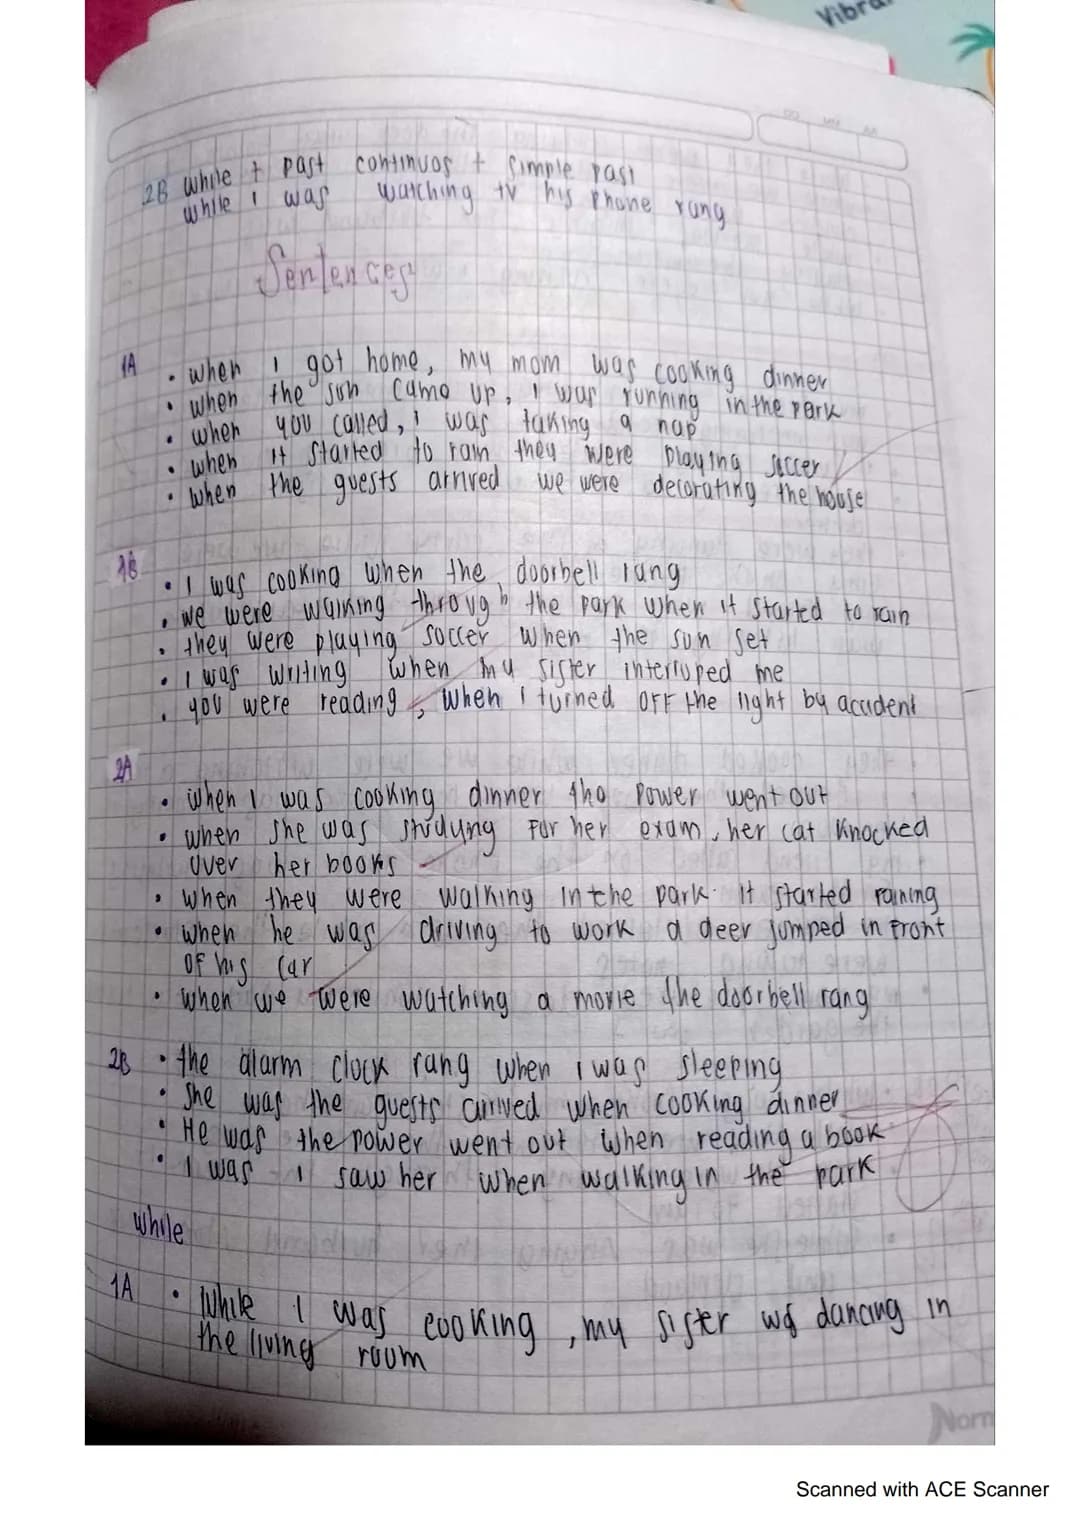 Vibra
2B while + past continuos + simple past
while I was watching tv his phone rang
Sentences
1A
• when I got home, my mom was cooking dinner
• when the sun came up, I was running in the park
• when you called, I was taking a nap
• when it started to rain they were playing soccer
• when the guests arrived we were decorating the house
1B
• I was cooking when the doorbell rang
• we were walking through the park when it started to rain
• they were playing soccer when the sun set
• I was writing when my sister interruped me
• you were reading, when I turned off the light by accident
2A
• when I was cooking dinner the power went out
• when she was studying for her exam, her cat knocked
over her books
• when they were walking in the park. It started raining
• when he was driving to work a deer jumped in front
of his car
• when we were watching a movie the doorbell rang
2B • the alarm clock rang when I was sleeping
• She was the guests arrived when cooking dinner
• He was the power went out when reading a book
• I was I saw her when walking in the park
while
1A • While I was cooking, my sister was dancing in
the living room
Norm
Scanned with ACE Scanner